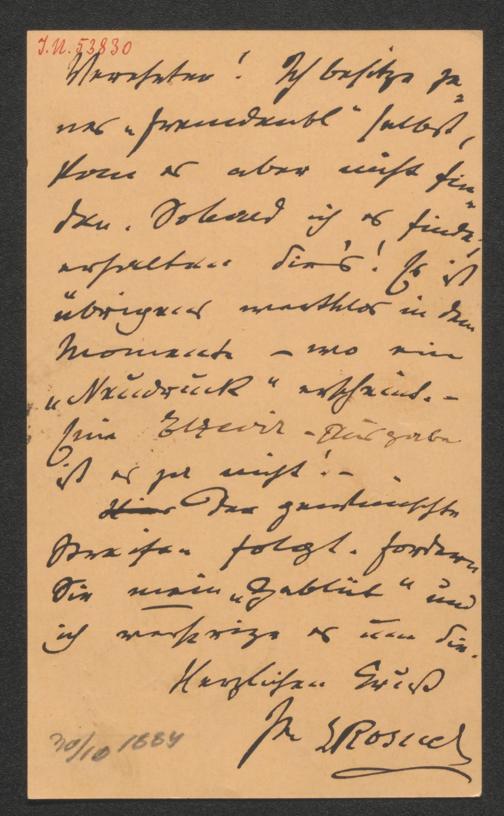 J.N. 53830
Verehrter! Ich besitze je-
nes „Fremdenbl" selbst,
kann es aber nicht fin-
den. Sobald ich es finde,
erhalten Sie's! Es ist
übrigens werthlos in dem
Momente – wo ein
„Neudruck" erscheint. –
Eine Elzevir-Ausgabe
ist es ja nicht! –
Der gewünschte
Streifen folgt. Fordern
Sie mein „Geblüt" und
ich verspritze es um Sie.
Herzlichen Gruß
Ihr LRosner
30/10 1884